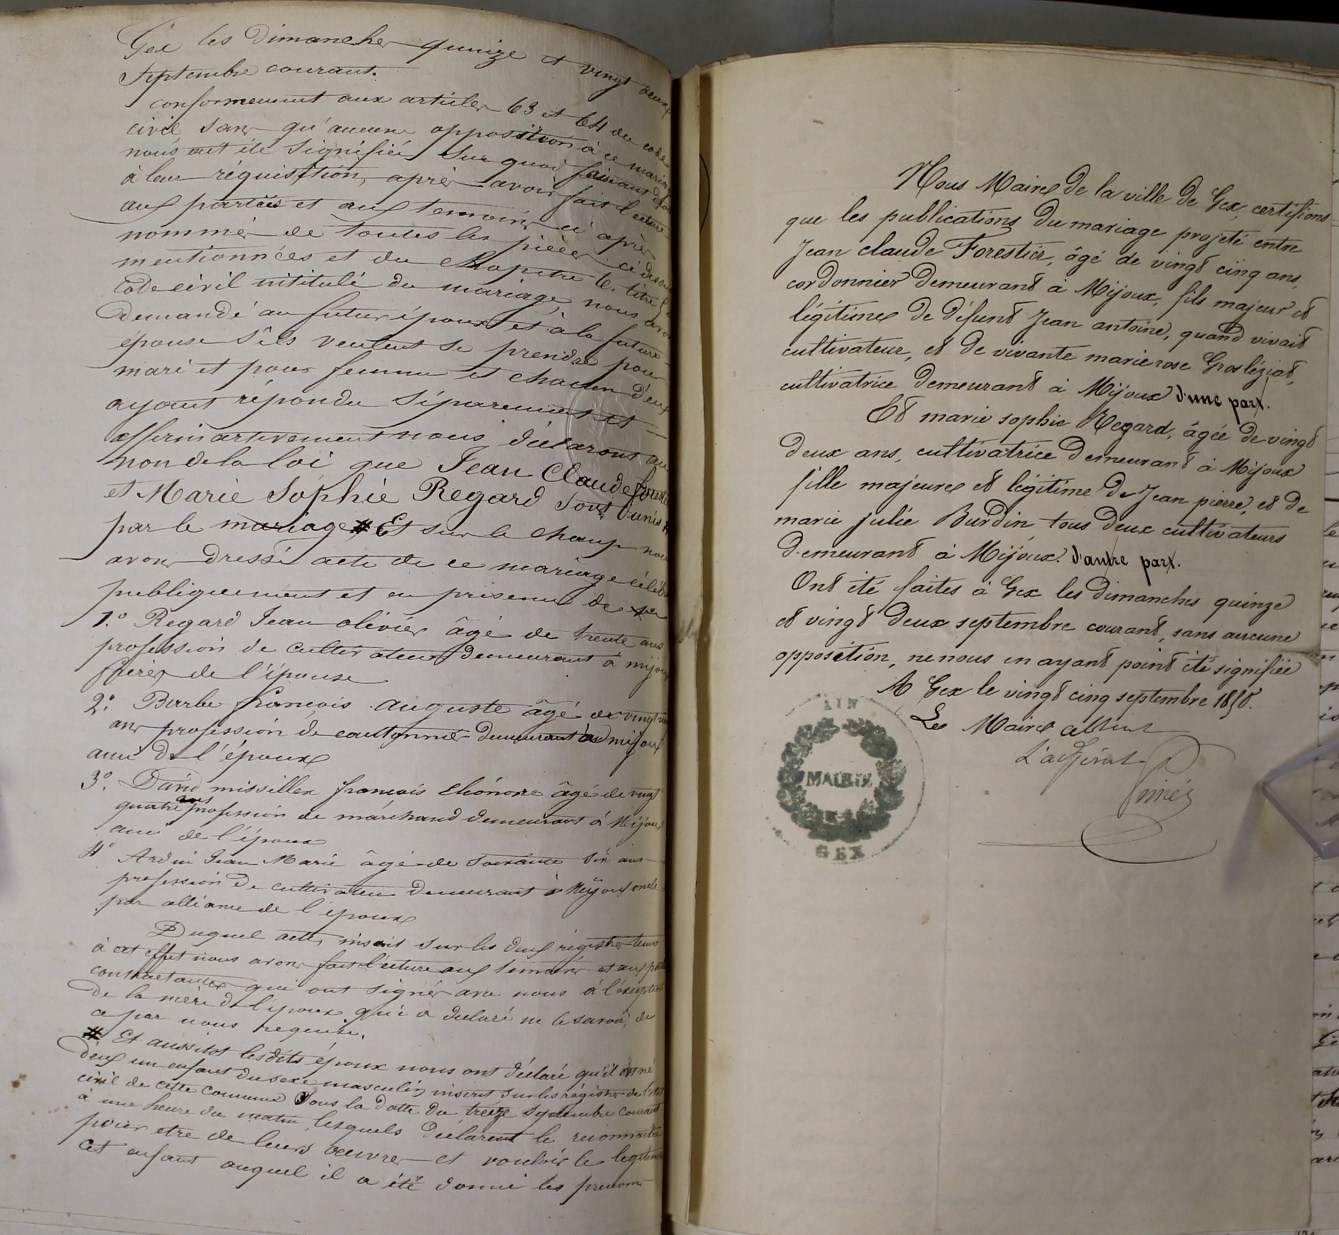 Gex les dimanches quinze et vingt deux
septembre courant.
conformement aux articles 63 et 64 du code
civil sans qu'aucune opposition à ce mariage
nous ait été signifiée sur quoi faisant droit
à leur réquisition, après avoir fait lecture
aux parties et aux temoins ci après
nommés de toutes les pièces ci dessus
mentionnées et du chapitre 6. titre
code civil intitulé du mariage, nous avons
demandé au futur époux et à la future
épouse s'ils veulent se prendre pour
mari et pour femme et chacun d'eux
ayant répondu séparement et
affirmativement nous déclarons au
nom de la loi que Jean Claude Forestier
et Marie Sophie Regard sont unis
par le mariage # Et sur le champ nous
avons dressé acte de ce mariage célébré
publiquement et en présence de
1.° Regard Jean olivier âgé de trente ans
profession de cultivateur demeurant à mijoux
frère de l'épouse
2.° Barbe françois auguste âgé de vingt
ans profession de cantonnier demeurant à mijoux
ami de l'époux
3.° David missillier françois Eléonore âgé de vingt
quatre ans profession de marchand demeurant à Mijoux
ami de l'époux
4° Ardui Jean Marie âgé de soixante six ans
profession de cultivateur demeurant à Mijoux oncle
par alliance de l'époux
Duquel acte, inscrit sur les deux régistres tenus
à cet effet nous avons fait lecture aux temoins et aux parties
contractantes qui ont signé avec nous à l'exception
de la mère de l'époux qui a declaré ne le savoir, de
ce par nous requise.
# Et aussitot lesdits époux nous ont déclaré qu'il est né
d'eux un enfant du sexe masculin, inscrit sur les régistres de l'état
civil de cette commune sous la datte du treize septembre courant
à une heure du matin, lesquels déclarent le reconnaitre
pour etre de leurs oeuvres et vouloir le legitimer
cet enfant auquel il a été donné les prenoms
Nous Maire de la ville de Gex, certifions
que les publications du mariage projeté entre
Jean claude Forestier, âgé de vingt cinq ans,
cordonnier demeurant à Mijoux, fils majeur et
légitime de défunt Jean antoine, quand vivait
cultivateur, et de vivante marie rose Groslégiat,
cultivatrice demeurant à Mijoux d'une part.
Et marie sophie Regard, âgée de vingt
deux ans, cultivatrice demeurant à Mijoux
fille majeure et légitime de Jean pierre, et de
marie julie Burdin tous deux cultivateurs
demeurant à Mijoux. d'autre part.
Ont été faites à Gex les dimanches quinze
et vingt deux septembre courant, sans aucune
opposition, ne nous en ayant point été signifiée
A Gex le vingt cinq septembre 1850.
Le Maire absent
L'adjoint
AIN
MAIRIE
GEX